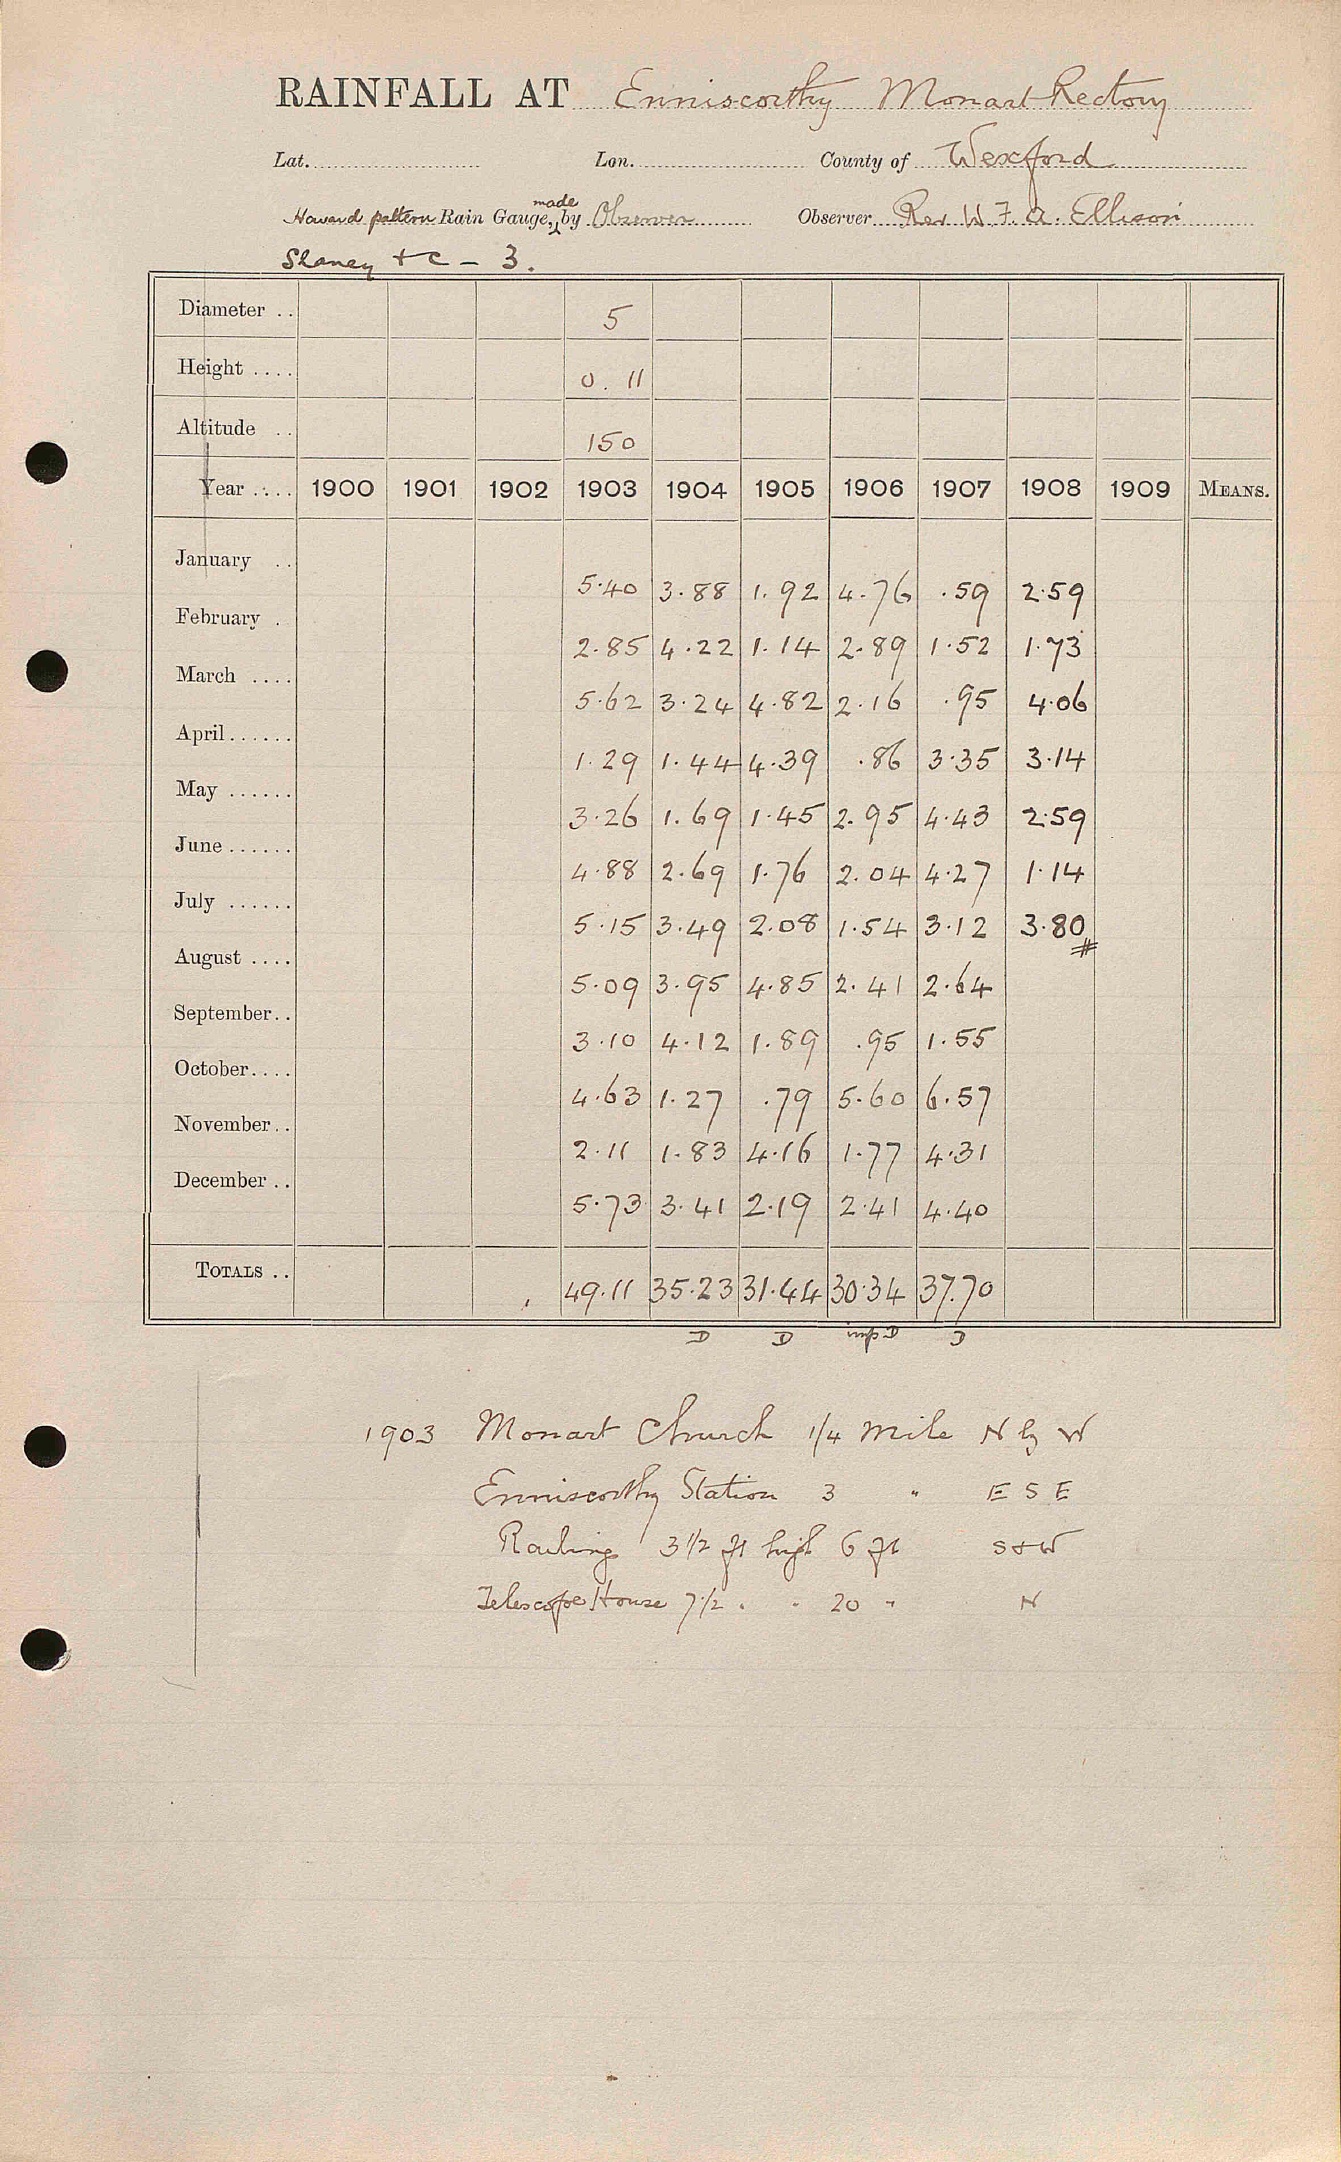 RAINFALL AT Enniscorthy Monart Rectory
Lat. Lon. County of Wexford
Howard pattern Rain Gauge, made by Observer Observer Rev W. F. A. Ellison
Slaney + c - 3.
Diameter .. 5
Height .... 0. 11
Altitude .. 150
Year .... 1900 1901 1902 1903 1904 1905 1906 1907 1908 1909 MEANS.
January .. 5.40 3.88 1.92 4.76 .59 2.59
February . 2.85 4.22 1.14 2.89 1.52 1.73
March .... 5.62 3.24 4.82 2.16 .95 4.06
April...... 1.29 1.44 4.39 .86 3.35 3.14
May ...... 3.26 1.69 1.45 2.95 4.43 2.59
June ...... 4.88 2.69 1.76 2.04 4.27 1.14
July ...... 5.15 3.49 2.08 1.54 3.12 3.80 #
August .... 5.09 3.95 4.85 2.41 2.64
September.. 3.10 4.12 1.89 .95 1.55
October.... 4.63 1.27 .79 5.60 6.57
November.. 2.11 1.83 4.16 1.77 4.31
December .. 5.73 3.41 2.19 2.41 4.40
TOTALS .. 49.11 35.23 31.44 30.34 37.70
D D imp D D
1903 Monart Church 1/4 mile N by W
Enniscorthy Station 3 " E S E
Railings 3 1/2 ft high 6 ft S + W
Telescope House 7 1/2 " " 20 " N